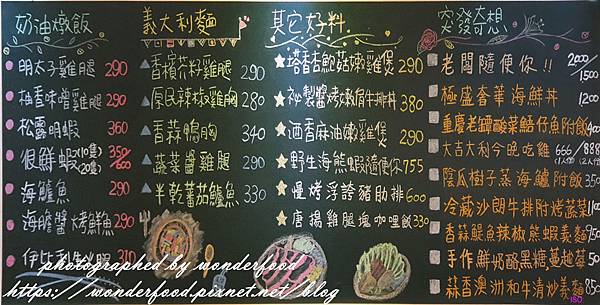 奶油燉飯
明太子雞腿 290
柚香味增雞腿 290
松露明蝦 360
很鮮蝦 (10隻) 350 (20隻) 600
海鱸魚 290
海膽醬大烤鮮魚 310
義大利麵
香檳茄籽雞腿 290
原民辣椒雞胸 280
香蒜鴨胸 340
蔬菜醬雞腿 290
半乾蕃茄鱸魚 330
其它好料
塔香杏鮑菇嫩雞煲 290
祕製醬烤嫩肩牛排丼 380
酒香麻油嫩雞煲 290
野生海熊蝦隨便你 755
慢烤浮誇豬肋排 600
唐揚雞腿塊咖哩飯 330
突發奇想
老闆隨便你!! 2000/1500
極盛奢華海鮮丼 1200
重慶老罈酸菜鱸仔魚附飯 400
大吉大利今晚吃雞 666/888
陰瓜樹子蒸海鱸附飯 350
冷藏沙朗牛排附烤蔬菜 1100
香蒜鯷魚辣椒熊蝦義麵 950
手作鮮奶酪黑糖蔓越莓 50
蒜香澳洲和牛清炒義麵 850
photographed by wonderfood
https://wonderfood.pixnet.net/blog